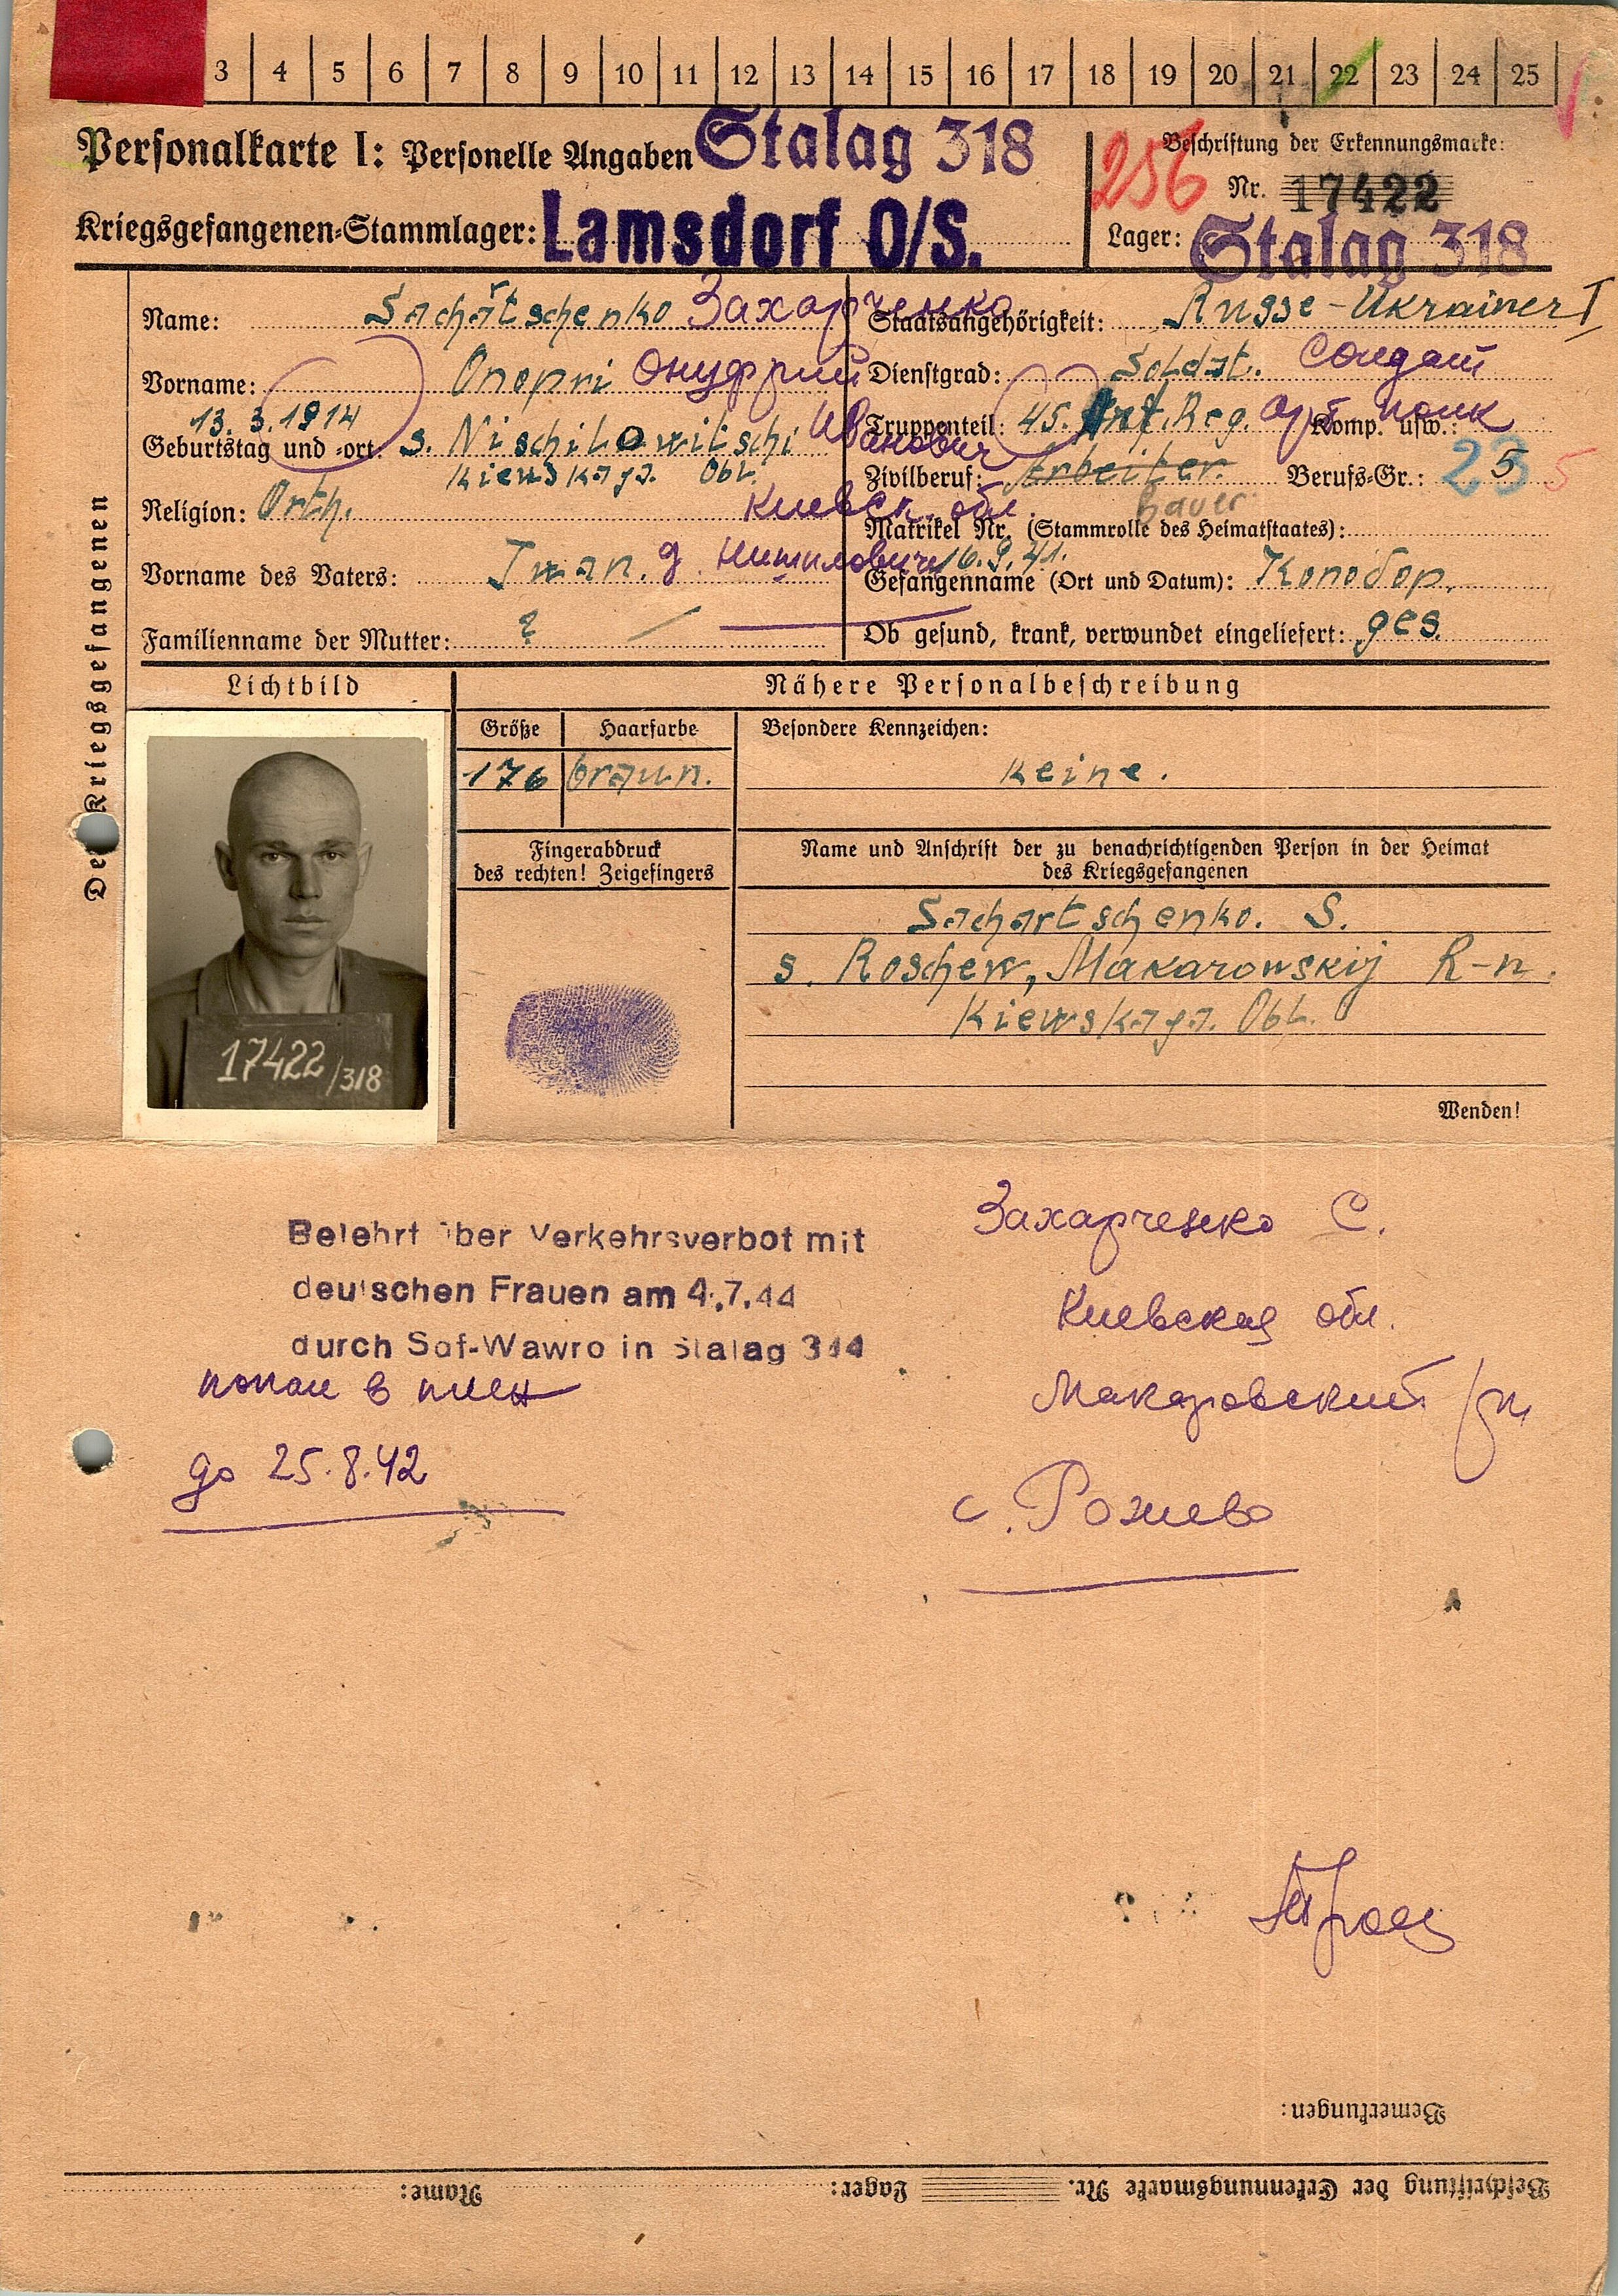 3 4 5 6 7 8 9 10 11 12 13 14 15 16 17 18 19 20 21 22 23 24 25
Personalkarte I: Personelle Angaben Stalag 318
Kriegsgefangenen-Stammlager: Lamsdorf O/S.
256 Beschriftung der Erkennungsmarke:
Nr. 17422
Lager: Stalag 318
Des Kriegsgefangenen
Name: Sachartschenko Захарченко
Vorname: Onopri Онуфрий
Иванович
13.3.1914
Geburtstag und -ort: s. Nischilowitschi
Kiewskaja. Obl.
Religion: Orth. Киевск. обл.
Vorname des Vaters: Iwan. д. Нишиловичи
Familienname der Mutter: ?
Staatsangehörigkeit: Russe-Ukrainer I
Dienstgrad: Soldat. Солдат
Truppenteil: 45. Art. Reg. Арт. полк Komp. usw.:
Zivilberuf: Arbeiter. Berufs-Gr.: 23 5 5
Bauer
Matrikel Nr. (Stammrolle des Heimatstaates):
16.9.41.
Gefangenname (Ort und Datum): Копобор.
Ob gesund, krank, verwundet eingeliefert: ges.
Lichtbild
Nähere Personalbeschreibung
Größe Haarfarbe Besondere Kennzeichen:
176 braun. keine.
Fingerabdruck
des rechten! Zeigefingers
Name und Anschrift der zu benachrichtigenden Person in der Heimat
des Kriegsgefangenen
Sachartschenko. S.
s. Roschew, Makarowskij R-n.
Kiewskaja. Obl.
17422/318
Wenden!
Belehrt über Verkehrsverbot mit
deutschen Frauen am 4.7.44
durch Sof-Wawro in Stalag 344
попал в плен
до 25.8.42
Захарченко С.
Киевская обл.
Макаровский р/н
с. Рожево
Bemerkungen:
Beschriftung der Erkennungsmarke Nr. Lager: Name: